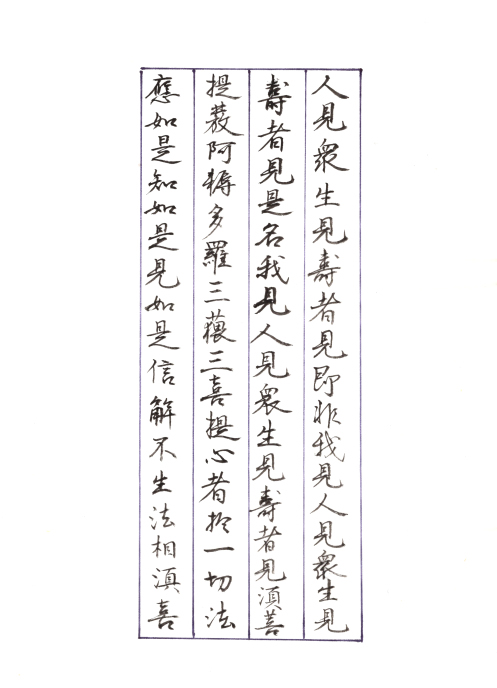 人見衆生見壽者見即非我見人見衆生見
壽者見是名我見人見衆生見壽者見須菩
提發阿耨多羅三藐三菩提心者於一切法
應如是知如是見如是信解不生法相須菩